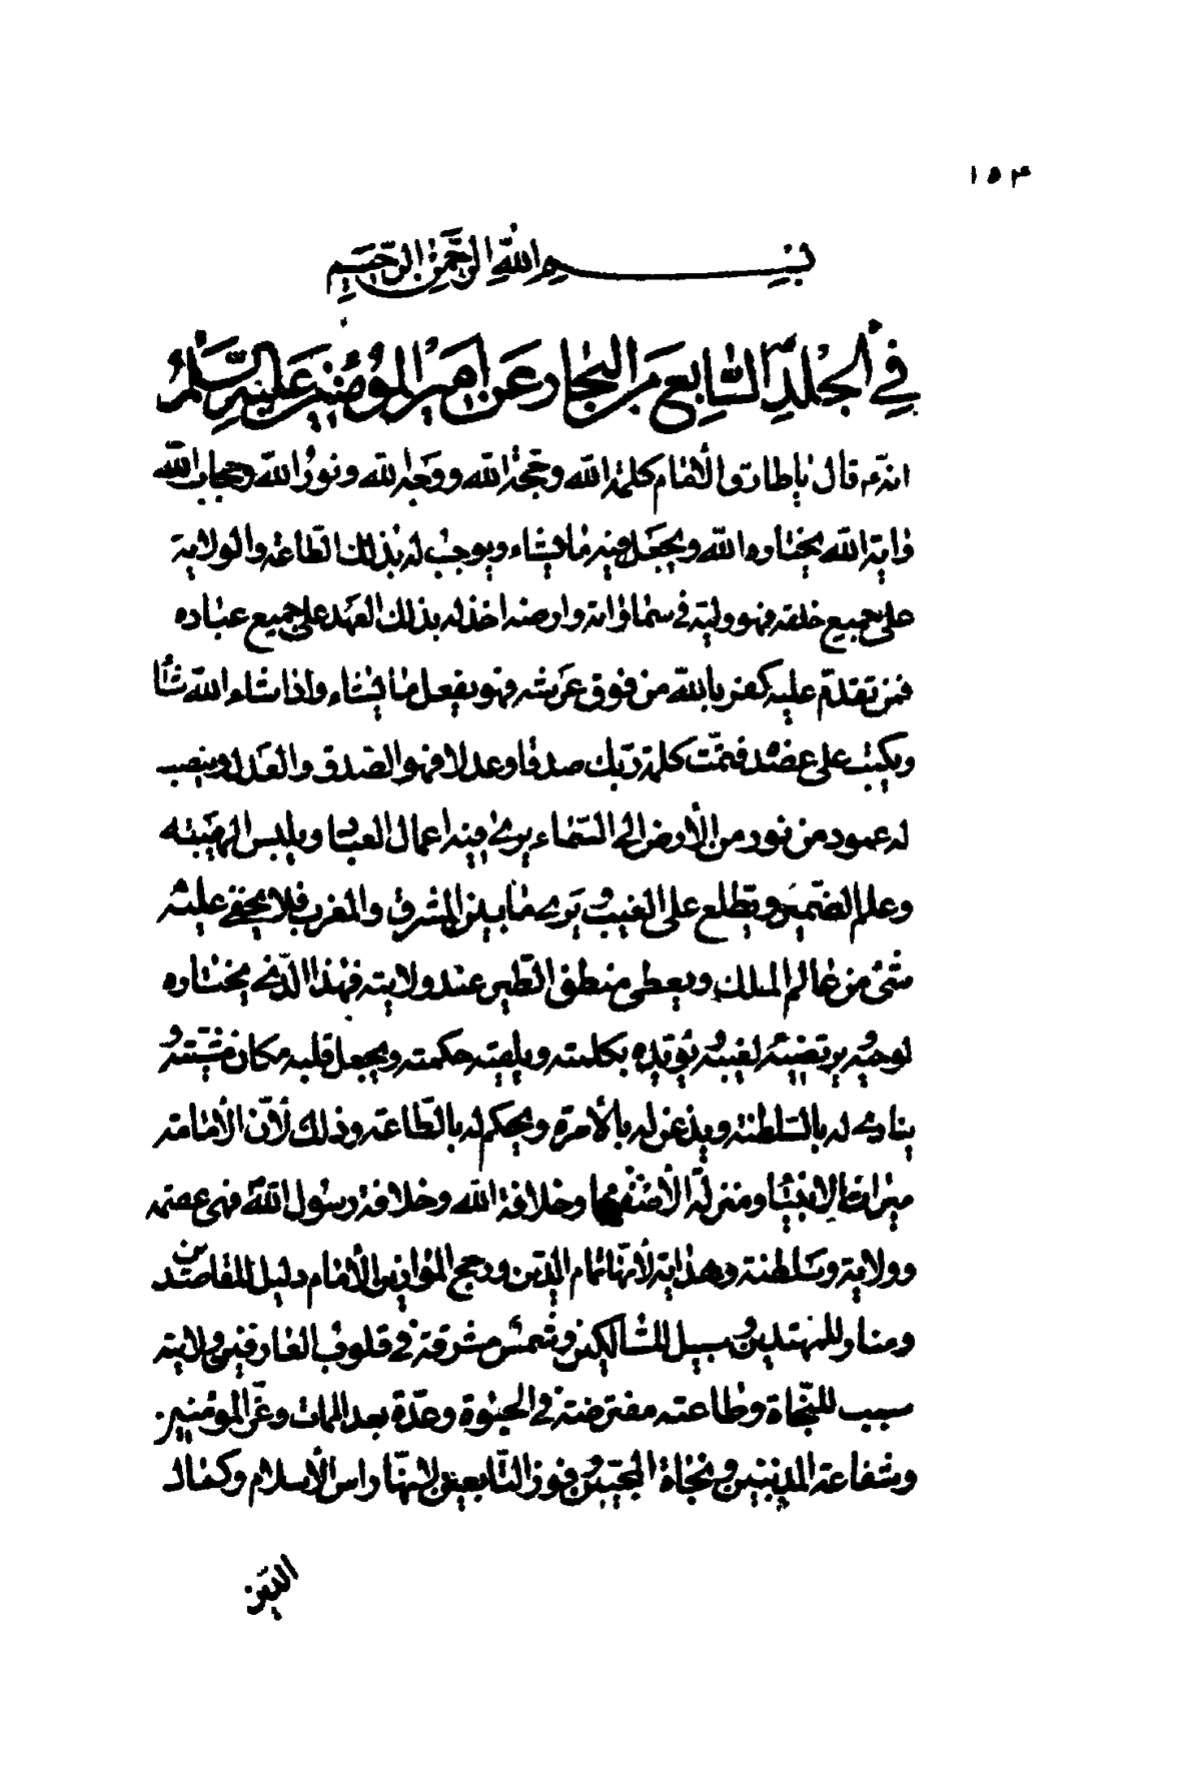 ١٥٤
بسم الله الرحمن الرحیم
في المجلد السابع من البحار عن امیر المؤمنین علیه السلام
انه ع قال یا طارق الامام كلمة الله وحجة الله ووجه الله ونور الله وحجاب الله
واية الله يختاره الله ويجعل فيه ما يشاء ويوجب له بذلك الطاعة والولاية
على جميع خلقه فهو وليه في سماواته وارضه اخذ له بذلك العهد على جميع عباده
فمن تقدم عليه كفر بالله من فوق عرشه فهو يفعل ما يشاء واذا شاء الله شاء
ويكتب على عضده فتمت كلمة ربك صدقا وعدلا فهو الصدق والعدل وينصب
له عمود من نور من الأرض الى السماء يرى فيه اعمال العباد ويلبس الهيبة
وعلم الضمير ويطلع على الغيب يرى ما بين المشرق والمغرب فلا يخفى عليه
شئ من عالم الملك ويعطى منطق الطير عند ولايته فهذا الذي يختاره
لوحيه ويرتضيه لغيبه ويؤيده بكلمته ويلقيه حكمته ويجعل قلبه مكان مشيته و
ينادي له بالسلطنة ويذعن له بالأمرة ويحكم له بالطاعة وذلك لأن الأمامة
ميراث الانبياء ومنزلة الأصفياء وخلافة الله وخلافة رسول الله فهي عصمة
وولاية وسلطنة وهداية لأنها تمام الدين ورجح الموازين الأمام دليل للقاصدين
ومنار للمهتدين وسبيل للسالكين وشمس مشرقة في قلوب العارفين ولايته
سبب للنجاة وطاعته مفترضة في الحيوة وعدة بعد الممات وعز المؤمنين
وشفاعة المذنبين ونجاة المحبين وفوز التابعين لانها راس الأسلام وكمال